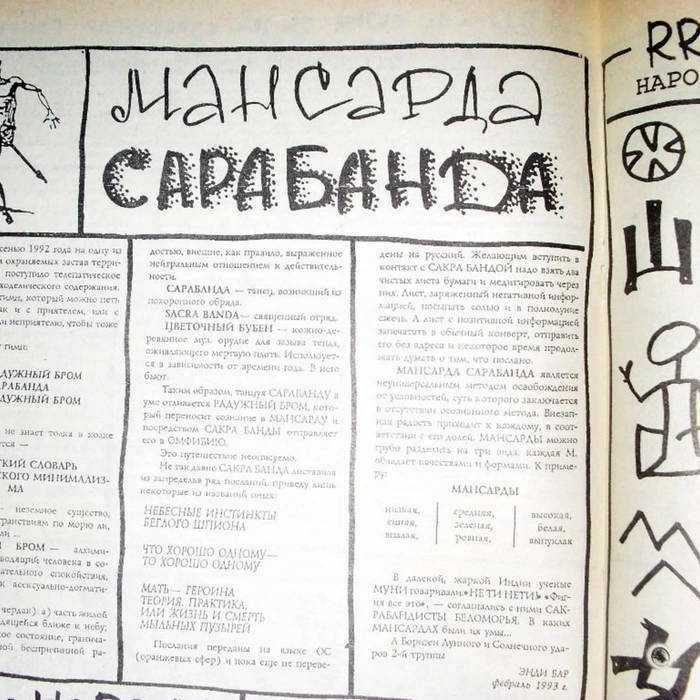 МАНСАРДА
САРАБАНДА
сенью 1992 года на одну из
охраняемых застав терри-
поступило телепатическое
ходелического содержания.
гимн, который можно петь
ак и с приятелем, или с
ли неприятелю, чтобы тоже
гимн:
АДУЖНЫЙ БРОМ
АРАБАНДА
АДУЖНЫЙ БРОМ
не знает толка в ходке
ется —
КИЙ СЛОВАРЬ
СКОГО МИНИМАЛИЗ-
МА
неземное существо,
транствиям по морю ли,
ли ...
БРОМ — алхими-
водящий человека в со-
ательного спокойствия,
к асексуально-догмати-
чердак): а) часть жилой
дящейся ближе к небу;
кое состояние, гранича-
ой беспричинной ра-
достью, внешне, как правило, выраженное
нейтральным отношением к действитель-
ности.
САРАБАНДА — танец, возникший из
похоронного обряда.
SACRA BANDA — священный отряд.
ЦВЕТОЧНЫЙ БУБЕН — кожно-де-
ревянное муз. орудие для зазыва тепла,
оживляющего мертвую плоть. Использует-
ся в зависимости от времени года. В него
бьют.
Таким образом, танцуя САРАБАНДУ в
уме отливается РАДУЖНЫЙ БРОМ, кото-
рый переносит сознание в МАНСАРДУ и
посредством САКРА БАНДЫ отправляет
его в ОМФИБИЮ.
Это путешествие неописуемо.
Не так давно САКРА БАНДА доставила
из запредела ряд посланий, приведу лишь
некоторые из названий оных:
НЕБЕСНЫЕ ИНСТИНКТЫ
БЕГЛОГО ШПИОНА
ЧТО ХОРОШО ОДНОМУ—
ТО ХОРОШО ОДНОМУ
МАТЬ— ГЕРОИНА
ТЕОРИЯ, ПРАКТИКА,
ИЛИ ЖИЗНЬ И СМЕРТЬ
МЫЛЬНЫХ ПУЗЫРЕЙ
Послания переданы на языке ОС
(оранжевых сфер) и пока еще не переве-
дены на русский. Желающим вступить в
контакт с САКРА БАНДОЙ надо взять два
чистых листа бумаги и медитировать через
них. Лист, заряженный негативной инфор-
мацией, посыпать солью и в полнолуние
сжечь. А лист с позитивной информацией
запечатать в обычный конверт, отправить
его без адреса и некоторое время продол-
жать думать о том, что послано.
МАНСАРДА САРАБАНДА является
неуниверсальным методом освобождения
от условностей, суть которого заключается
в отсутствии осознанного метода. Внезап-
ная радость приходит к каждому, в соот-
ветствии с его долей. МАНСАРДЫ можно
грубо разделить на три вида, каждая М.
обладает качествами и формами. К приме-
ру:
МАНСАРДЫ
низкая, средняя, высокая,
синяя, зеленая, белая,
впалая, ровная, выпуклая
В далекой, жаркой Индии ученые
МУНИ говаривали» НЕ ТИ НЕТИ» «Фиг-
ня все это», — соглашались с ними САК-
РАБАНДИСТЫ БЕЛОМОРЬЯ. В каких
МАНСАРДАХ были их умы...
А Борисен Лунного и Солнечного уда-
ров 2-й труппы
ЭНДИ БАР
февраль 1993 г.
RR
НАРО